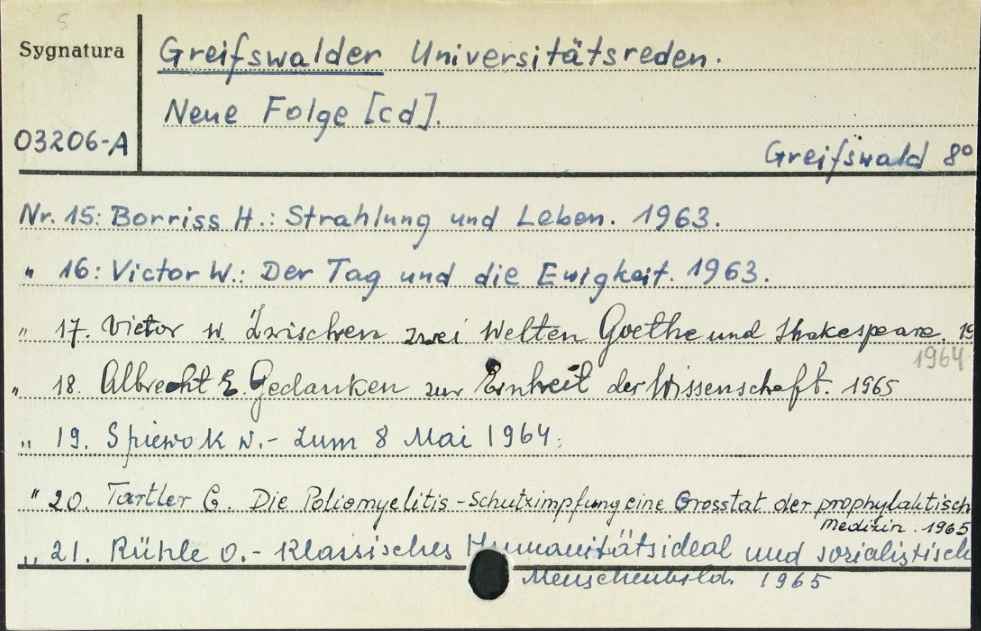 5
Sygnatura
Greifswalder Universitätsreden.
Neue Folge [cd].
03206-A
Greifswald 8º
Nr. 15: Borriss H.: Strahlung und Leben. 1963.
" 16: Victor W.: Der Tag und die Ewigkeit. 1963.
" 17. Victor W. Zwischen zwei Welten Goethe und Shakespeare. 19
1964
" 18. Albrecht E. Gedanken zur Einheit der Wissenschaft. 1965
" 19. Spiewok W.- Zum 8 Mai 1964.
" 20. Tartler G. Die Poliomyelitis-Schutzimpfung eine Grosstat der prophylaktisch
Medizin. 1965
" 21. Rühle O.- Klassisches Humanitätsideal und sozialistisch
Menschenbild. 1965